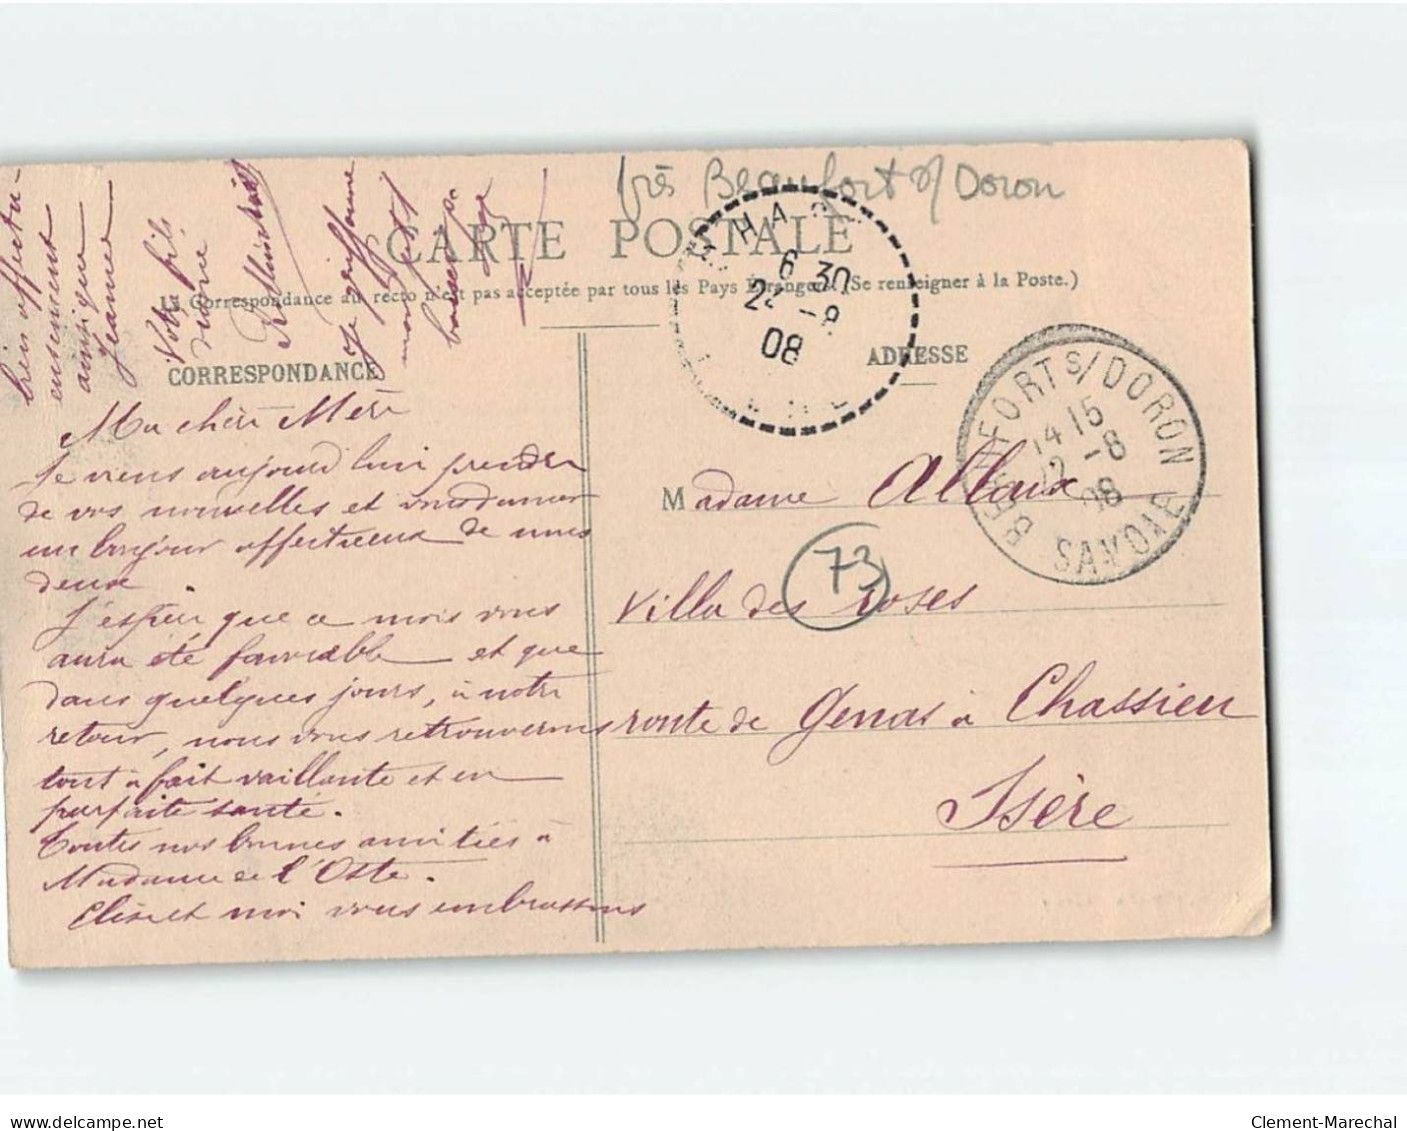 près Beaufort s/ Doron
CARTE POSTALE
La Correspondance au recto n'est pas acceptée par tous les Pays Étrangers. (Se renseigner à la Poste.)
CORRESPONDANCE
ADRESSE
Ma chère Mère
Je viens aujourd'hui prendre
de vos nouvelles et vous donner
un bonjour affectueux de nous
deux.
J'espère que ce mois vous
aura été favorable et que
dans quelques jours, à notre
retour, nous vous retrouverons
tout à fait vaillante et en
parfaite santé.
Toutes nos bonnes amitiés à
Madame de l'Oste.
Elise et moi vous embrassons
bien affectu-
eusement
ainsi que
Jeanne
Votre fils
6 30
22 -8
08
BEAUFORT S/DORON
14 15
22 -8
08
SAVOIE
Madame Alloux
73
Villa des roses
route de Genas à Chassieu
Isère
www.delcampe.net
Clement-Marechal